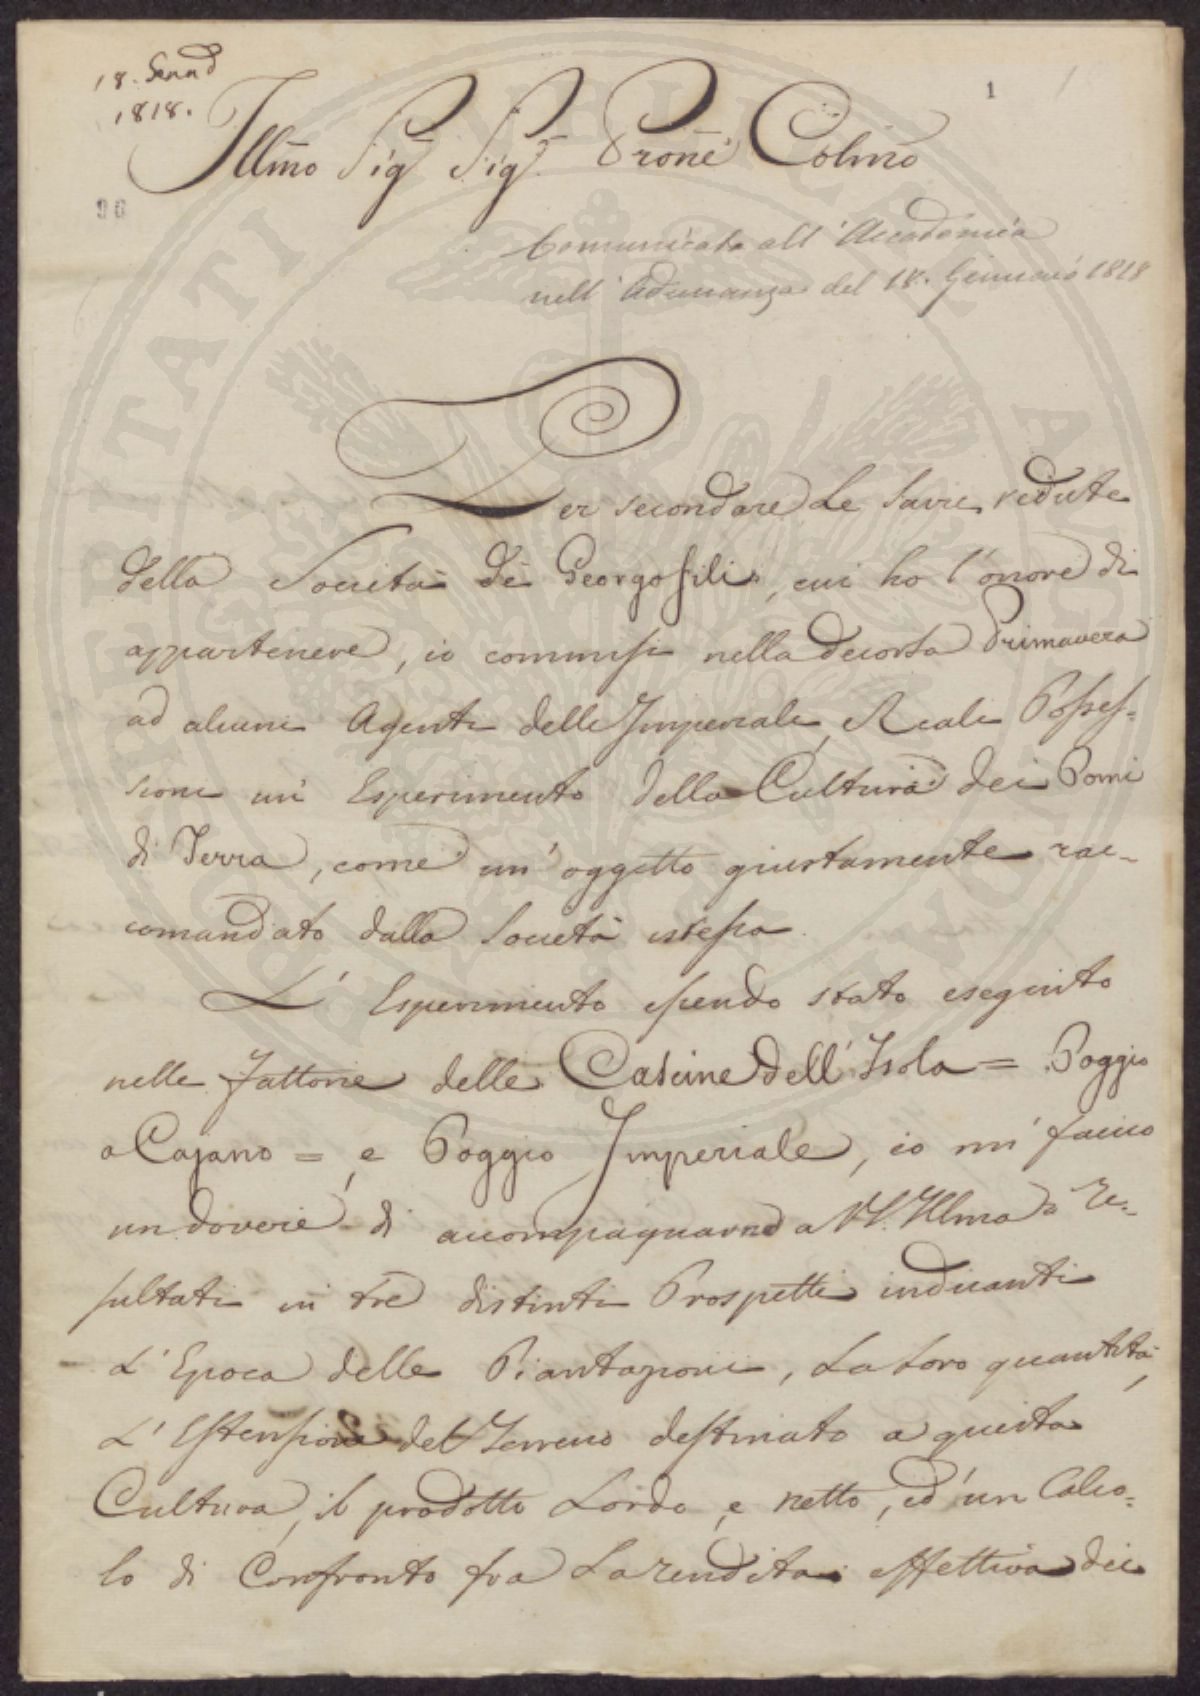 18. Genn°
1818.
1
Illmo Sig. Sig. Prone Colmo
96
Comunicata all'Accademia
nell'Adunanza del 18. Gennaio 1818
Per secondare le savie vedute
della Società de Georgofili, cui ho l'onore di
appartenere, io commisi nella decorsa Primavera
ad alcuni Agenti delle Imperiali, e Reali Posses=
sioni un Esperimento della Cultura dei Pomi
di Terra, come un'oggetto giustamente rac=
comandato dalla Società istessa.
L'Esperimento essendo stato eseguito
nelle Fattorie delle Cascine dell'Isola = Poggio
a Cajano =, e Poggio Imperiale, io mi faccio
un dovere di accompagnarne a VS. Illma i Re=
sultati in tre distinti Prospetti indicanti
L'Epoca delle Piantazioni, La loro quantità,
L'Estensione del Terreno destinato a questa
Cultura, il prodotto Lordo, e netto, ed'un Calco=
lo di Confronto fra La rendita effettiva dei
PROSPERITATI PUBLICAE AUGENDAE